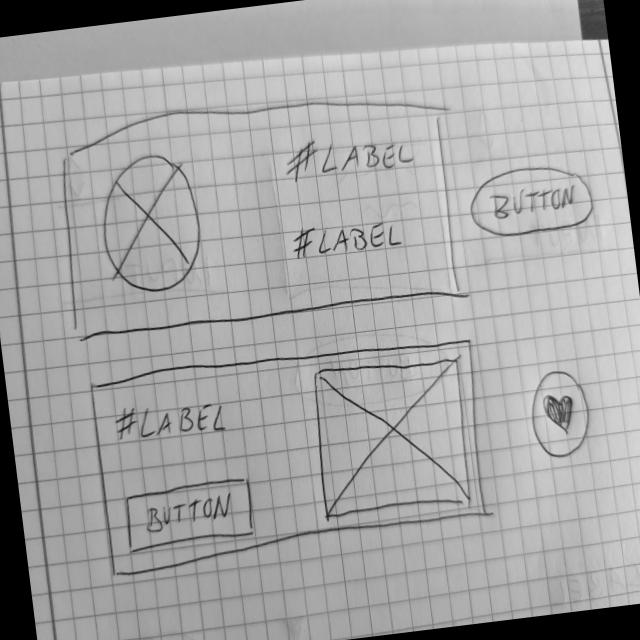 #LABEL
#LABEL
BUTTON
#LABEL
BUTTON